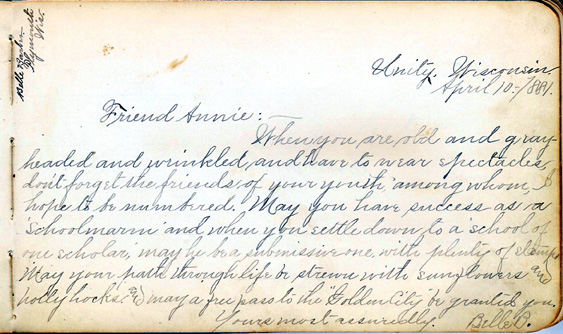 Belle Barber
Plymouth
Wis.
Unity, Wisconsin.
April 10-/1881.
Friend Annie:
When you are old and gray-
headed and wrinkled, and have to wear spectacles,
don't forget the friends of your youth among whom, I
hope to be numbered. May you have success as a
"schoolmarm" and when you settle down to a school of
one scholar, may he be a submissive one, with plenty of stamps
May your path through life be strewn with sunflowers and
hollyhocks. And may a free pass to the "Golden City" be granted you.
Yours most assuredly. Belle B.